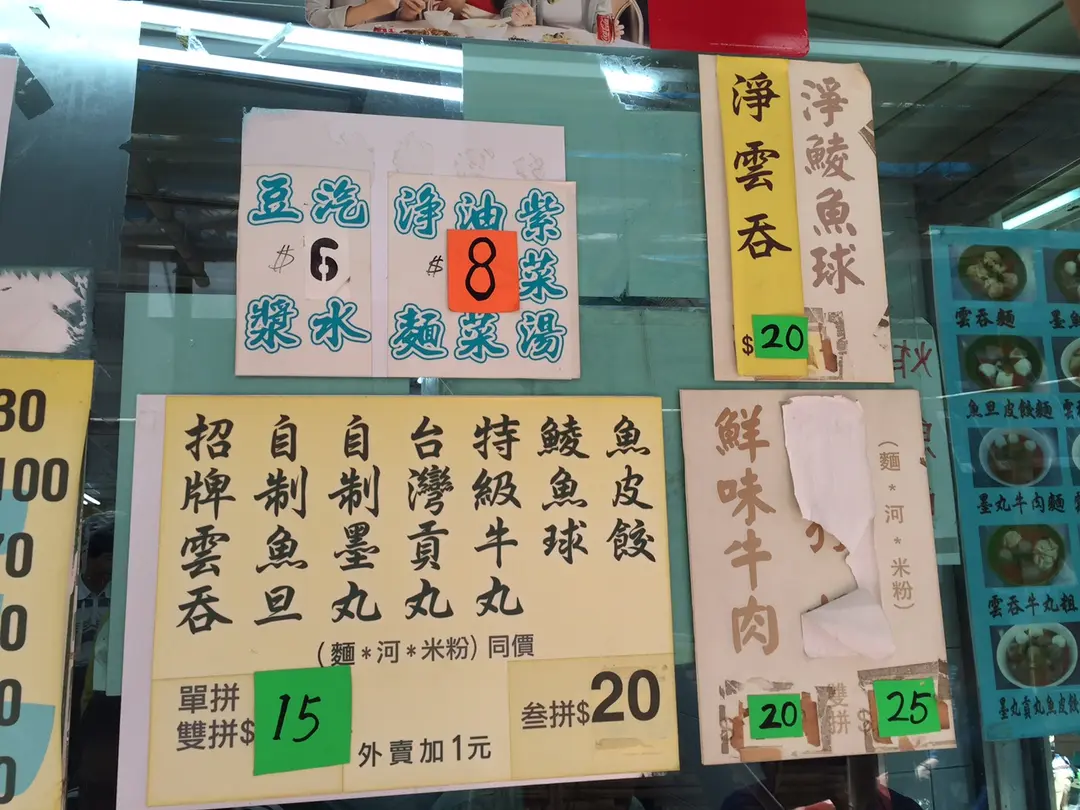 豆漿
汽水
$6
淨麵
油菜
紫菜湯
$8
淨雲吞
淨鯪魚球
$20
招牌雲吞
自制魚旦
自制墨丸
台灣貢丸
特級牛丸
鯪魚球
魚皮餃
(麵*河*米粉)同價
單拼
雙拼$15
叁拼$20
外賣加1元
鮮味牛肉
(麵*河*米粉)
20
雙拼$25
30
100
70
雲吞麵
魚旦皮餃麵
墨丸牛肉麵
雲吞牛丸粗
墨丸貢丸魚皮餃